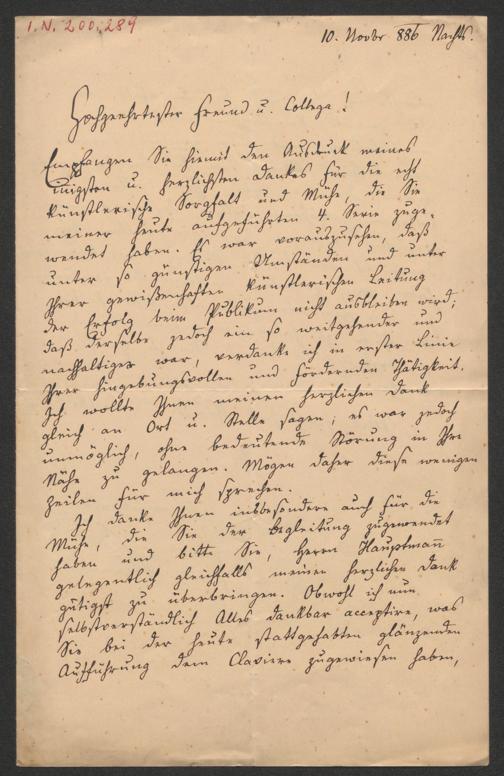 I.N. 200.289
10. Novbr 886 Nachts.
Hochgeehrtester Freund u. Collega!
Empfangen Sie hiemit den Ausdruck meines
innigsten u. herzlichsten Dankes für die echt
künstlerische Sorgfalt und Mühe, die Sie
meiner heute aufgeführten 4. Serie zuge-
wendet haben. Es war vorauszusehen, daß
unter so günstigen Umständen und unter
Ihrer gewissenhaften künstlerischen Leitung
der Erfolg beim Publikum nicht ausbleiben wird;
daß derselbe jedoch ein so weitgehender und
nachhaltiger war, verdanke ich in erster Linie
Ihrer hingebungsvollen und fördernden Thätigkeit.
Ich wollte Ihnen meinen herzlichen Dank
gleich an Ort u. Stelle sagen; es war jedoch
unmöglich, ohne bedeutende Störung in Ihre
Nähe zu gelangen. Mögen daher diese wenigen
Zeilen für mich sprechen.
Ich danke Ihnen insbesondere auch für die
Mühe, die Sie der Begleitung zugewendet
haben und bitte Sie, Herrn Hauptmann
gelegentlich gleichfalls meinen herzlichen Dank
gütigst zu überbringen. Obwohl ich nun
selbstverständlich Alles dankbar acceptire, was
Sie bei der heute stattgehabten glänzenden
Aufführung dem Claviere zugewiesen haben,